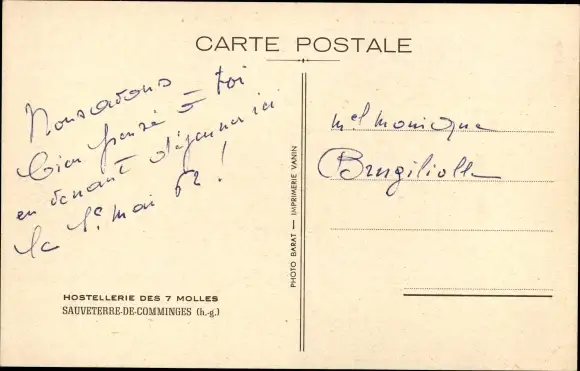 CARTE POSTALE
Nous avons
bien pensé à toi
en venant déjeuner ici
le 1er mai 62 !
Mel Monique
HOSTELLERIE DES 7 MOLLES
SAUVETERRE-DE-COMMINGES (h.-g.)
PHOTO BARAT — IMPRIMERIE VANIN